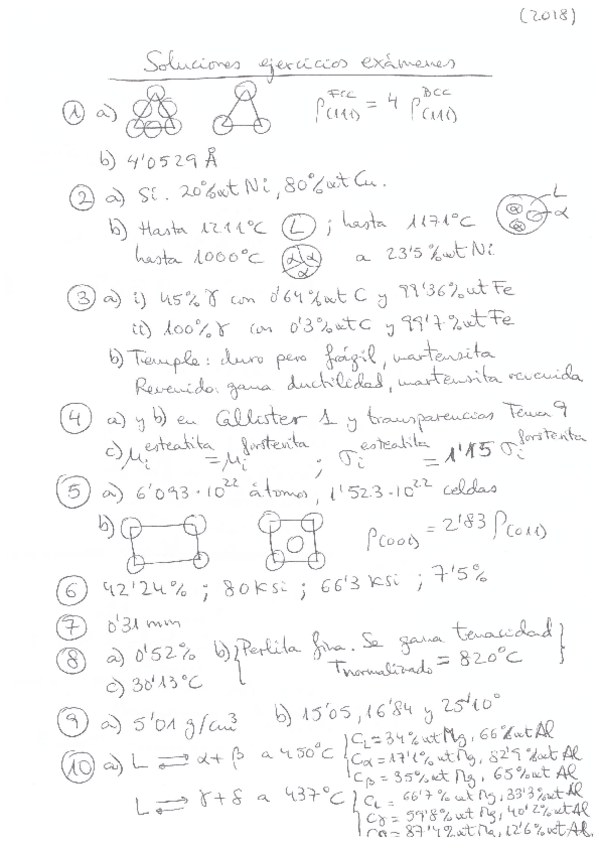 (2018)
Soluciones ejercicios exámenes
① a) ρ(111)^FCC = 4 ρ(111)^BCC
b) 4'0529 Å
② a) Sí. 20%wt Ni, 80%wt Cu.
b) Hasta 1211°C L ; hasta 1171°C L α
hasta 1000°C α α α a 23'5%wt Ni
③ a) i) 45% γ con 0'64%wt C y 99'36%wt Fe
ii) 100% γ con 0'3%wt C y 99'7%wt Fe
b) Temple: duro pero frágil, martensita
Revenido: gana ductilidad, martensita revenida
④ a) y b) en Callister 1 y transparencias Tema 9
c) μi^esteatita = μi^forsterita ; σi^esteatita = 1'15 σi^forsterita
⑤ a) 6'093·10^22 átomos, 1'523·10^22 celdas
b) ρ(001) = 2'83 ρ(011)
⑥ 42'24% ; 80 ksi ; 66'3 ksi ; 7'5%
⑦ 0'31 mm
⑧ a) 0'52% b) { Perlita fina. Se gana tenacidad
Tnormalizado = 820°C }
c) 30'13°C
⑨ a) 5'01 g/cm³ b) 15'05, 16'84 y 25'10°
⑩ a) L ⇌ α+β a 450°C { CL = 34%wt Mg, 66%wt Al
Cα = 17'1%wt Mg, 82'9%wt Al
Cβ = 35%wt Mg, 65%wt Al
L ⇌ γ+δ a 437°C { CL = 66'7%wt Mg, 33'3%wt Al
Cγ = 59'8%wt Mg, 40'2%wt Al
= 87'4%wt Mg, 12'6%wt Al.